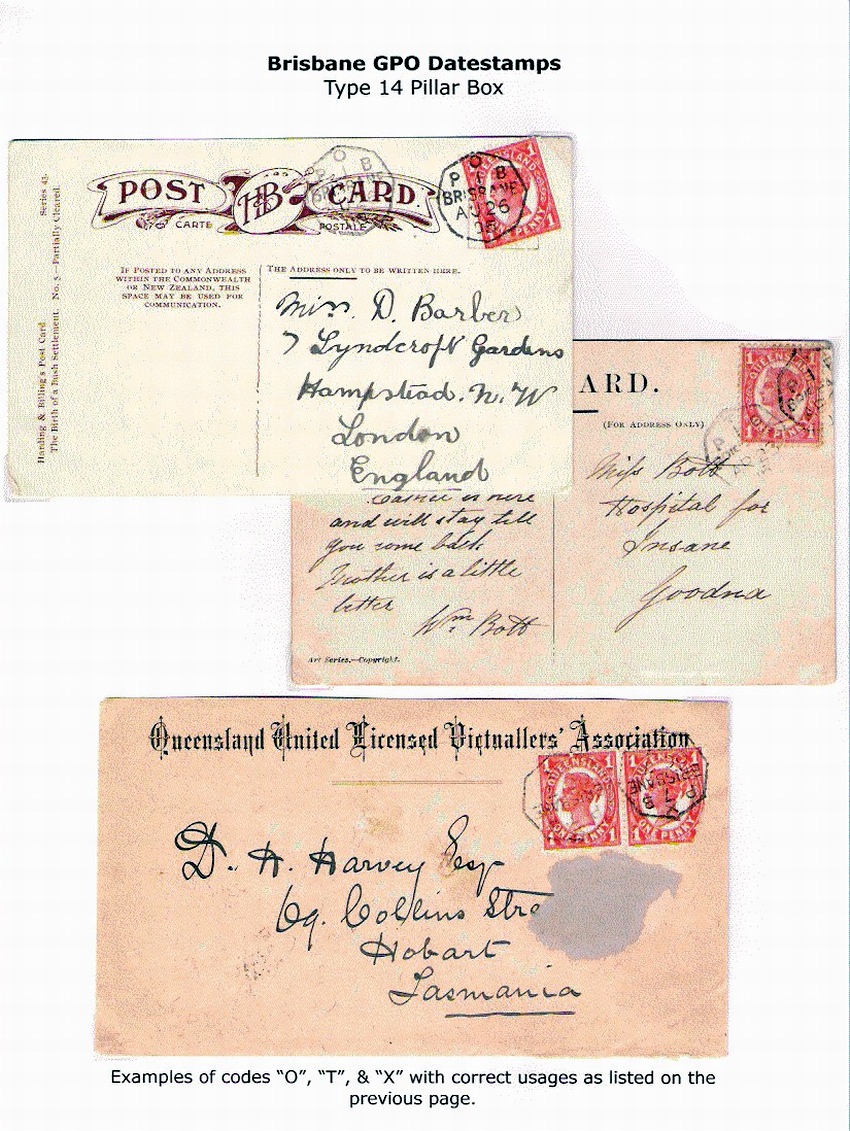 Brisbane GPO Datestamps
Type 14 Pillar Box
Harding & Billing's Post Card Series 43.
The Birth of a Bush Settlement. No. 5—Partially Cleared.
POST HB CARD.
CARTE POSTALE
O
P T B
BRISBANE
AU 26
08
ONE PENNY
IF POSTED TO ANY ADDRESS
WITHIN THE COMMONWEALTH
OR NEW ZEALAND, THIS
SPACE MAY BE USED FOR
COMMUNICATION.
THE ADDRESS ONLY TO BE WRITTEN HERE.
Miss. D. Barber
7 Lyndcroft Gardens
Hampstead. N. W
London
England
ARD.
(FOR ADDRESS ONLY)
1 QUEENSLAND 1
ONE PENNY
Miss Bott
Hospital for
Insane
Goodna
is here
and will stay till
you come back
Mother is a little
better
Wm Bott
Art Series.—Copyright.
Queensland United Licensed Victuallers' Association
1 QUEENSLAND 1
ONE PENNY
1 QUEENSLAND 1
ONE PENNY
X
P T B
BRISBANE
D. H. Harvey Esq
69. Collins Stre
Hobart
Tasmania
Examples of codes “O”, “T”, & “X” with correct usages as listed on the
previous page.